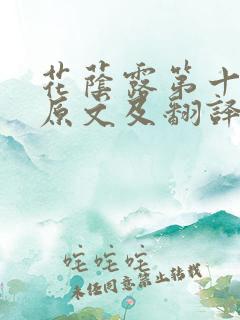 花蔭露第十
原文及翻譯
咤咤咤
未經同意禁止轉載